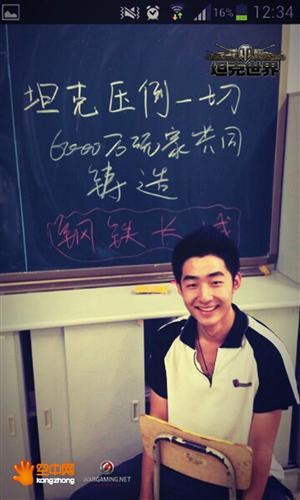 16% 12:34
坦克世界
坦克压倒一切
6000万玩家共同
铸造
钢铁长城
空中网
kongzhong
WARGAMING.NET